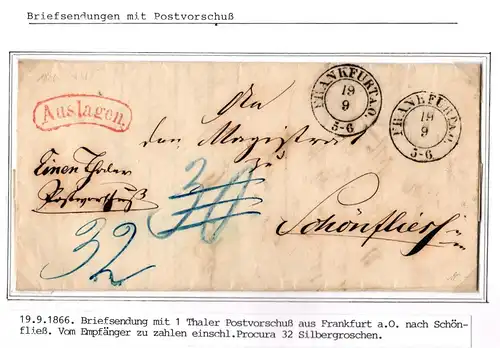 Briefsendungen mit Postvorschuß
Auslagen.
FRANKFURT A.O.
19
9
5-6
FRANKFURT A.O.
19
9
5-6
An
den Magistrat
zu
Schönfliess
Einen Thaler
Postvorschuß
32
19.9.1866. Briefsendung mit 1 Thaler Postvorschuß aus Frankfurt a.O. nach Schön-
fließ. Vom Empfänger zu zahlen einschl.Procura 32 Silbergroschen.